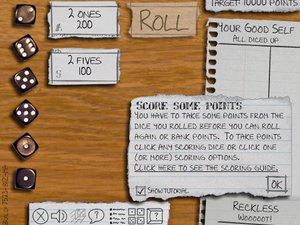 Target: 10000 points
2 Ones
200
Roll
Your Good Self
All diced up
2 Fives
100
Score Some Points
You have to take some points from the
dice you rolled before you can roll
again or bank points. To take points
click any scoring dice or click one
(or more) scoring options.
Click here to see the scoring guide.
Show tutorial
OK
Reckless
Woooot!